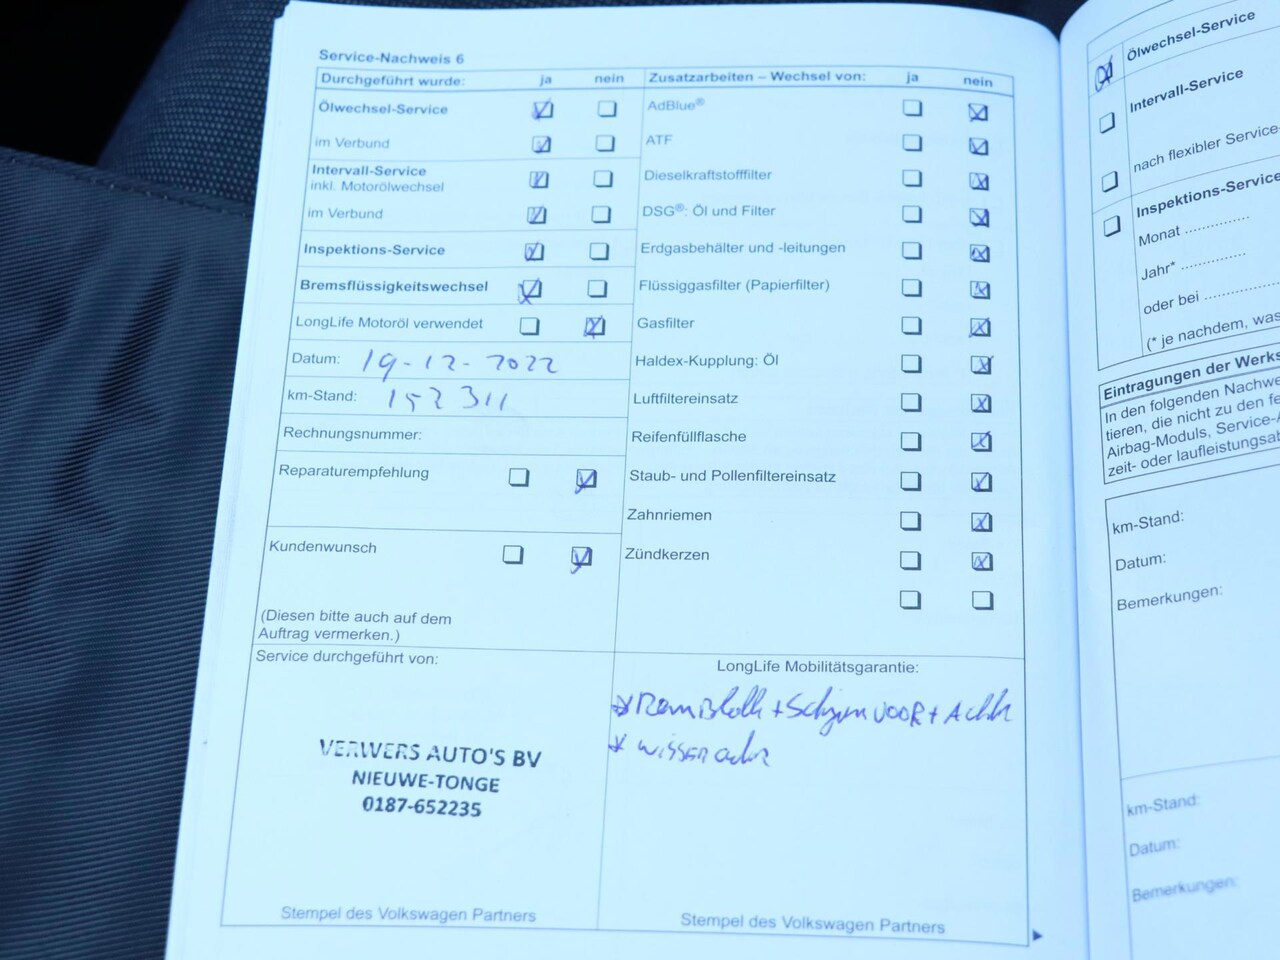 Service-Nachweis 6
Durchgeführt wurde: ja nein
Ölwechsel-Service
im Verbund
Intervall-Service
inkl. Motorölwechsel
im Verbund
Inspektions-Service
Bremsflüssigkeitswechsel
LongLife Motoröl verwendet
Datum: 19-12-2022
km-Stand: 152311
Rechnungsnummer:
Reparaturempfehlung
Kundenwunsch
(Diesen bitte auch auf dem
Auftrag vermerken.)
Service durchgeführt von:
VERWERS AUTO'S BV
NIEUWE-TONGE
0187-652235
Stempel des Volkswagen Partners
Zusatzarbeiten – Wechsel von: ja nein
AdBlue®
ATF
Dieselkraftstofffilter
DSG®: Öl und Filter
Erdgasbehälter und -leitungen
Flüssiggasfilter (Papierfilter)
Gasfilter
Haldex-Kupplung: Öl
Luftfiltereinsatz
Reifenfüllflasche
Staub- und Pollenfiltereinsatz
Zahnriemen
Zündkerzen
LongLife Mobilitätsgarantie:
* + VOOR +
* wisser
Stempel des Volkswagen Partners
Ölwechsel-Service
Intervall-Service
nach flexibler Service-
Inspektions-Service
Monat
Jahr*
oder bei
(* je nachdem, was
Eintragungen der Werks
In den folgenden Nachwe
tieren, die nicht zu den fe
Airbag-Moduls, Service-A
zeit- oder laufleistungsab
km-Stand:
Datum:
Bemerkungen:
km-Stand:
Datum:
Bemerkungen: